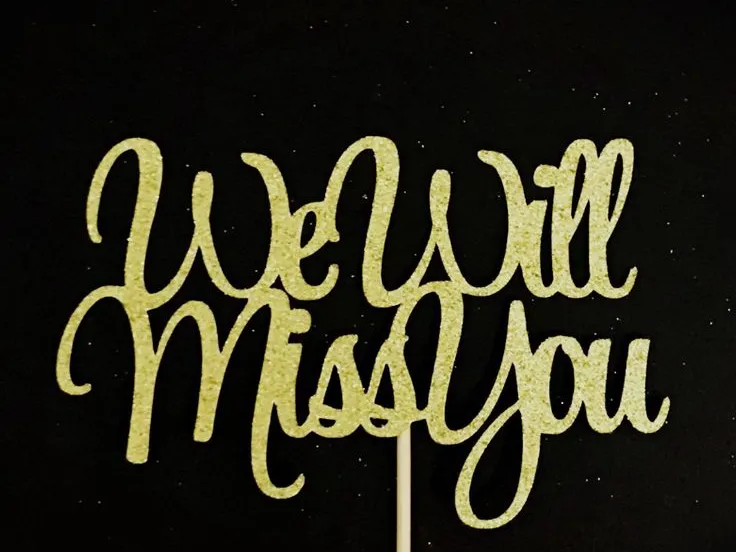 We Will
Miss You